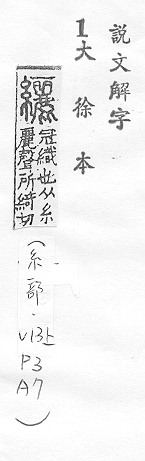 說文解字
1大徐本
纚
冠織也从糸
麗聲所綺切
(糸部·
V13上
P3
A7
)